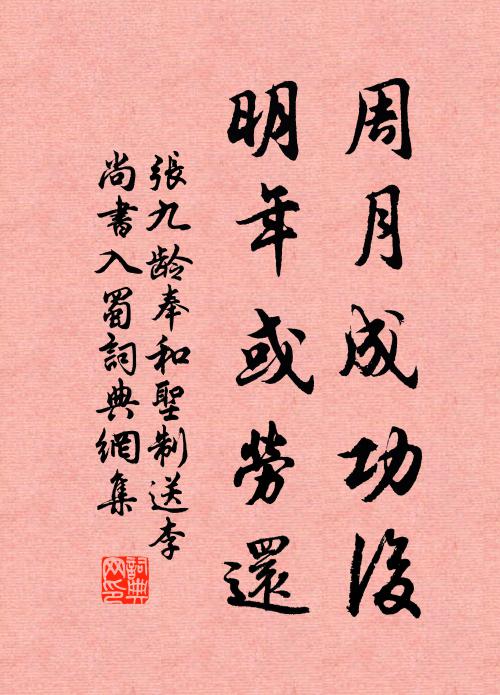 周月成功後
明年或勞還
張九龄奉和聖制送李
尚書入蜀詞典網集
詞典
网印